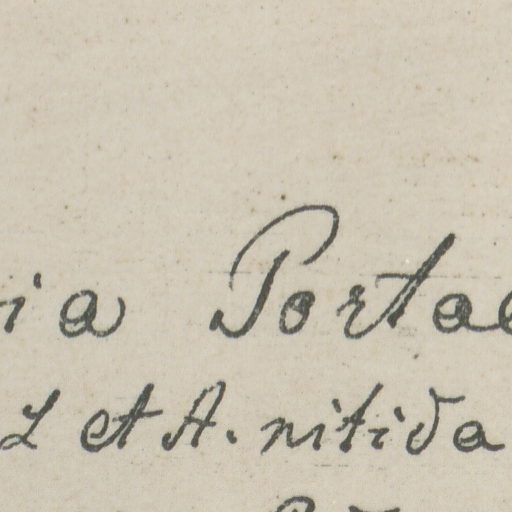 ia Porta
L et A. nitida